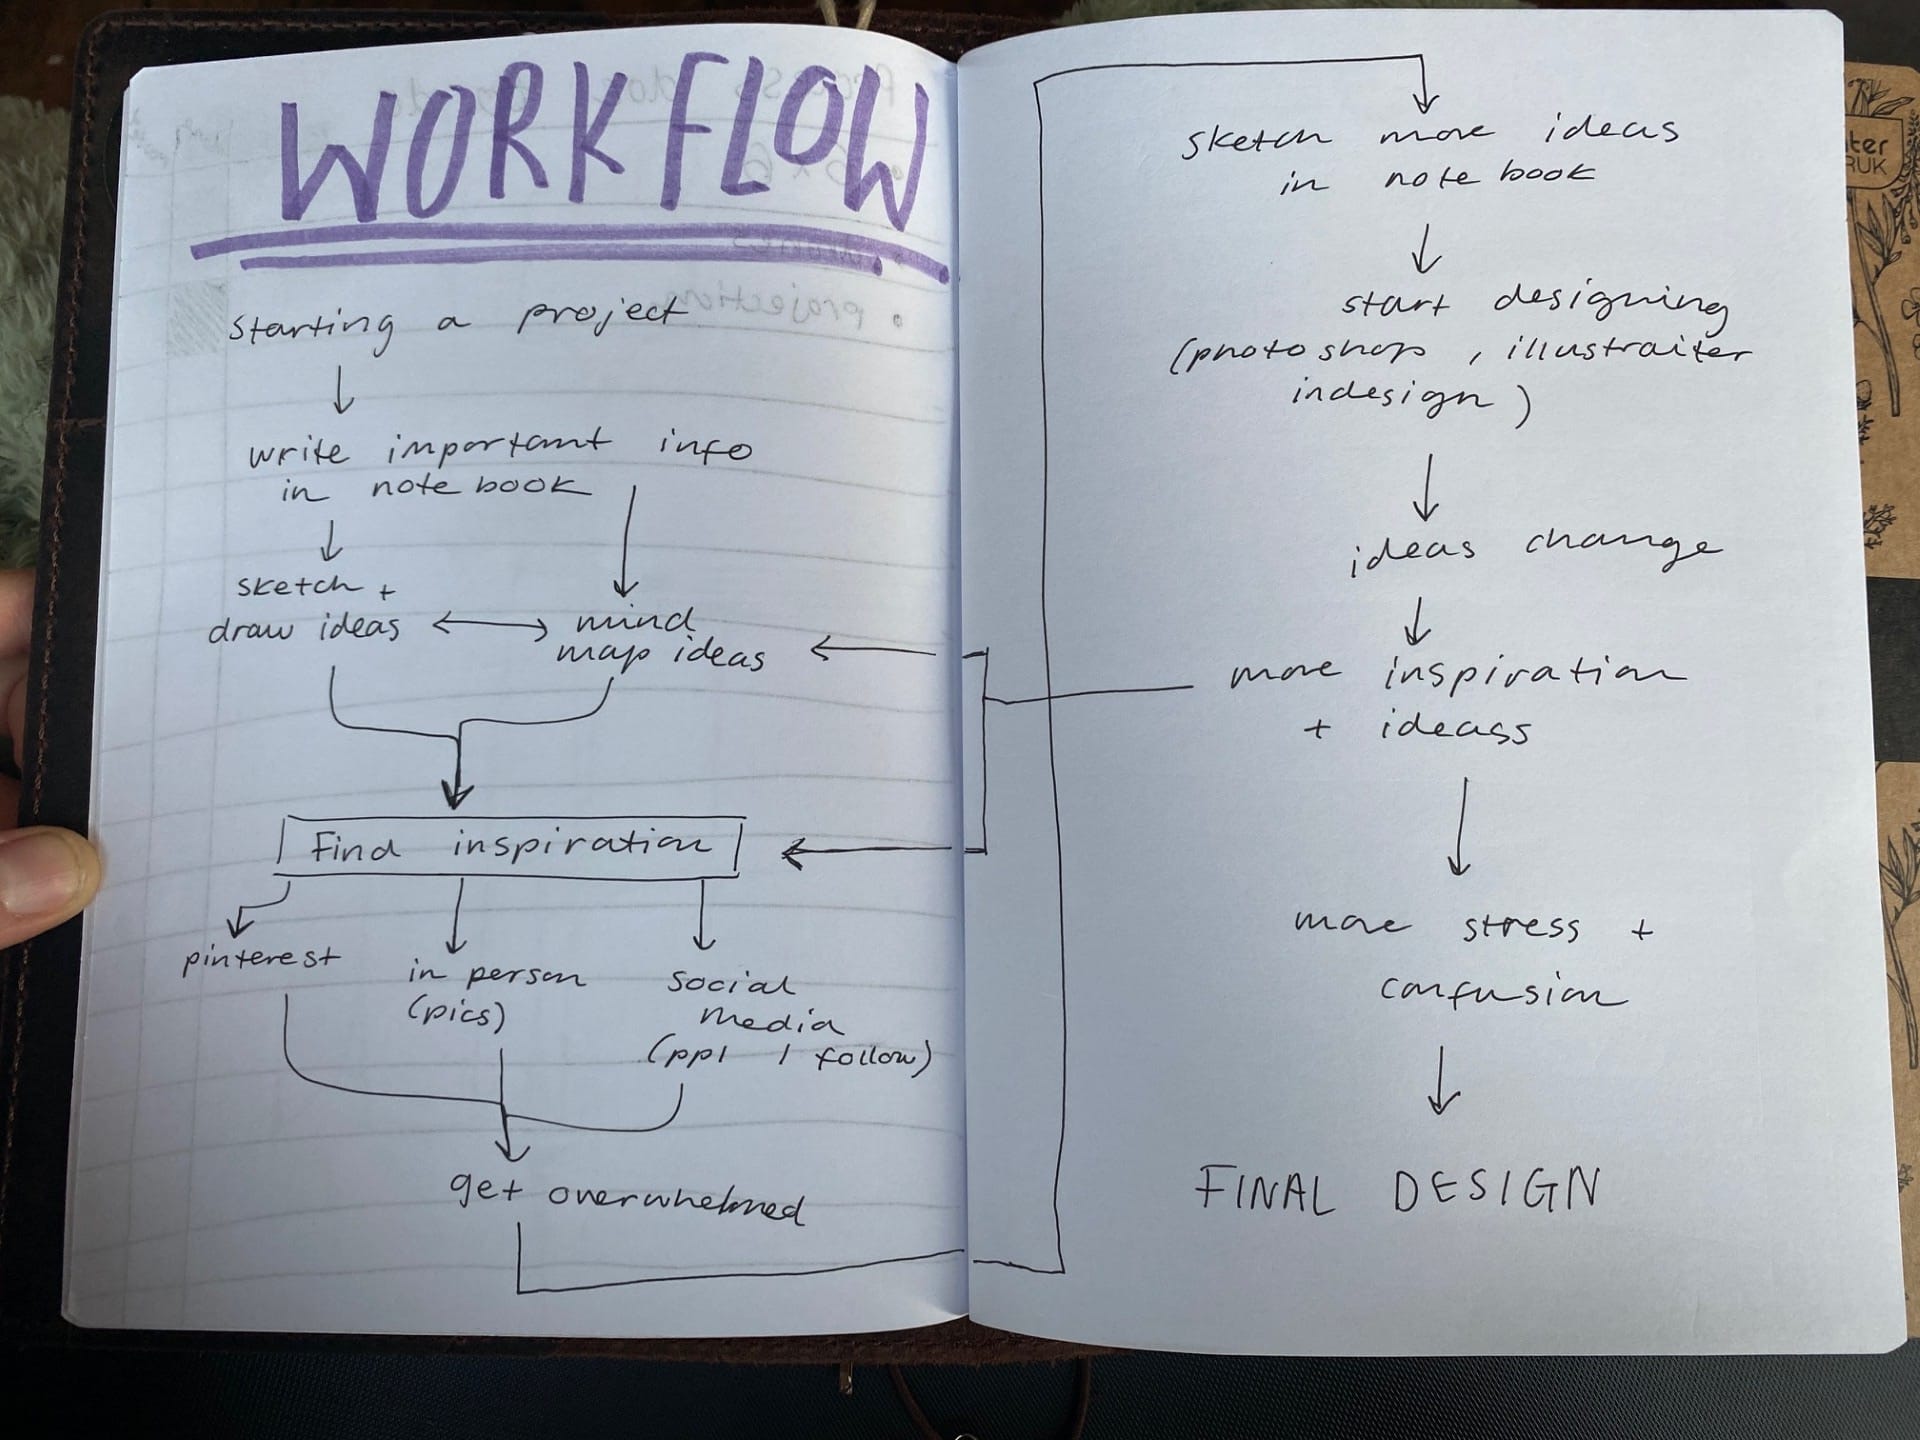 WORKFLOW
starting a project
write important info
in note book
sketch +
draw ideas
mind
map ideas
Find inspiration
pinterest
in person
(pics)
social
media
(ppl I follow)
get overwhelmed
sketch more ideas
in note book
start designing
(photoshop, illustraiter
indesign)
ideas change
more inspiration
+ ideass
more stress +
confusion
FINAL DESIGN
projection